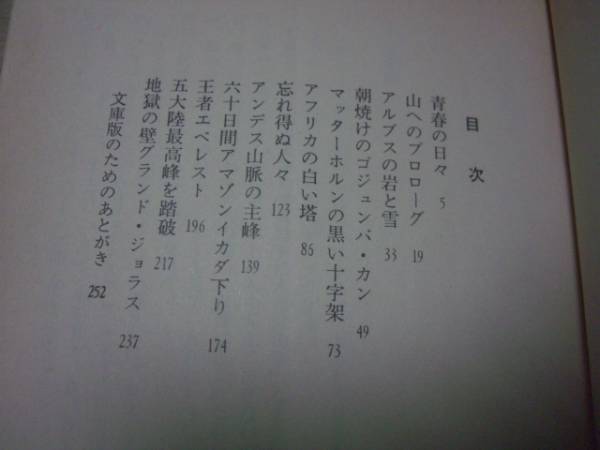 目次
青春の日々 5
山へのプロローグ 19
アルプスの岩と雪 33
朝焼けのゴジュンバ・カン 49
マッターホルンの黒い十字架 73
アフリカの白い塔 85
忘れ得ぬ人々 123
アンデス山脈の主峰 139
六十日間アマゾンイカダ下り 174
王者エベレスト 196
五大陸最高峰を踏破 217
地獄の壁グランド・ジョラス 237
文庫版のためのあとがき 252